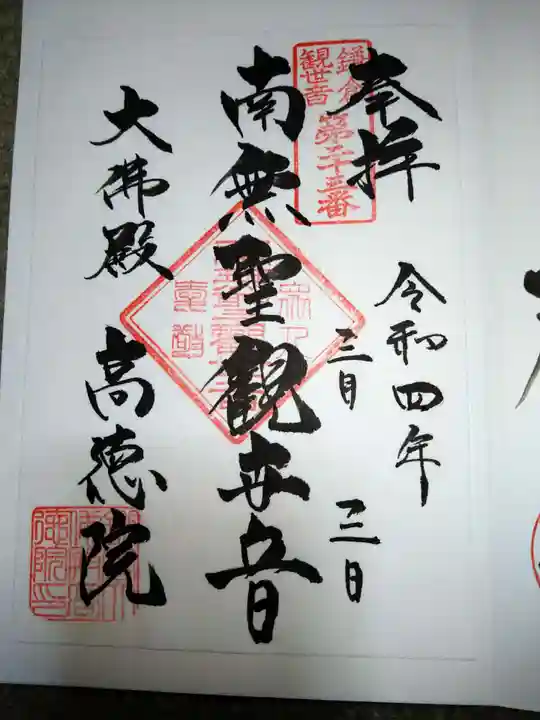 奉拝
鎌倉
観世音
第二十三番
令和四年
三月
三日
南無聖観世音
大佛殿
高徳院